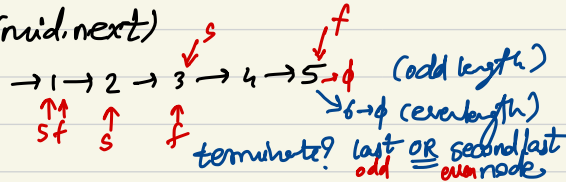 (mid.next)
s f
→ 1 → 2 → 3 → 4 → 5 → φ (odd length)
→ 6 → φ (even length)
s f s f
terminate? last OR second last
odd even node